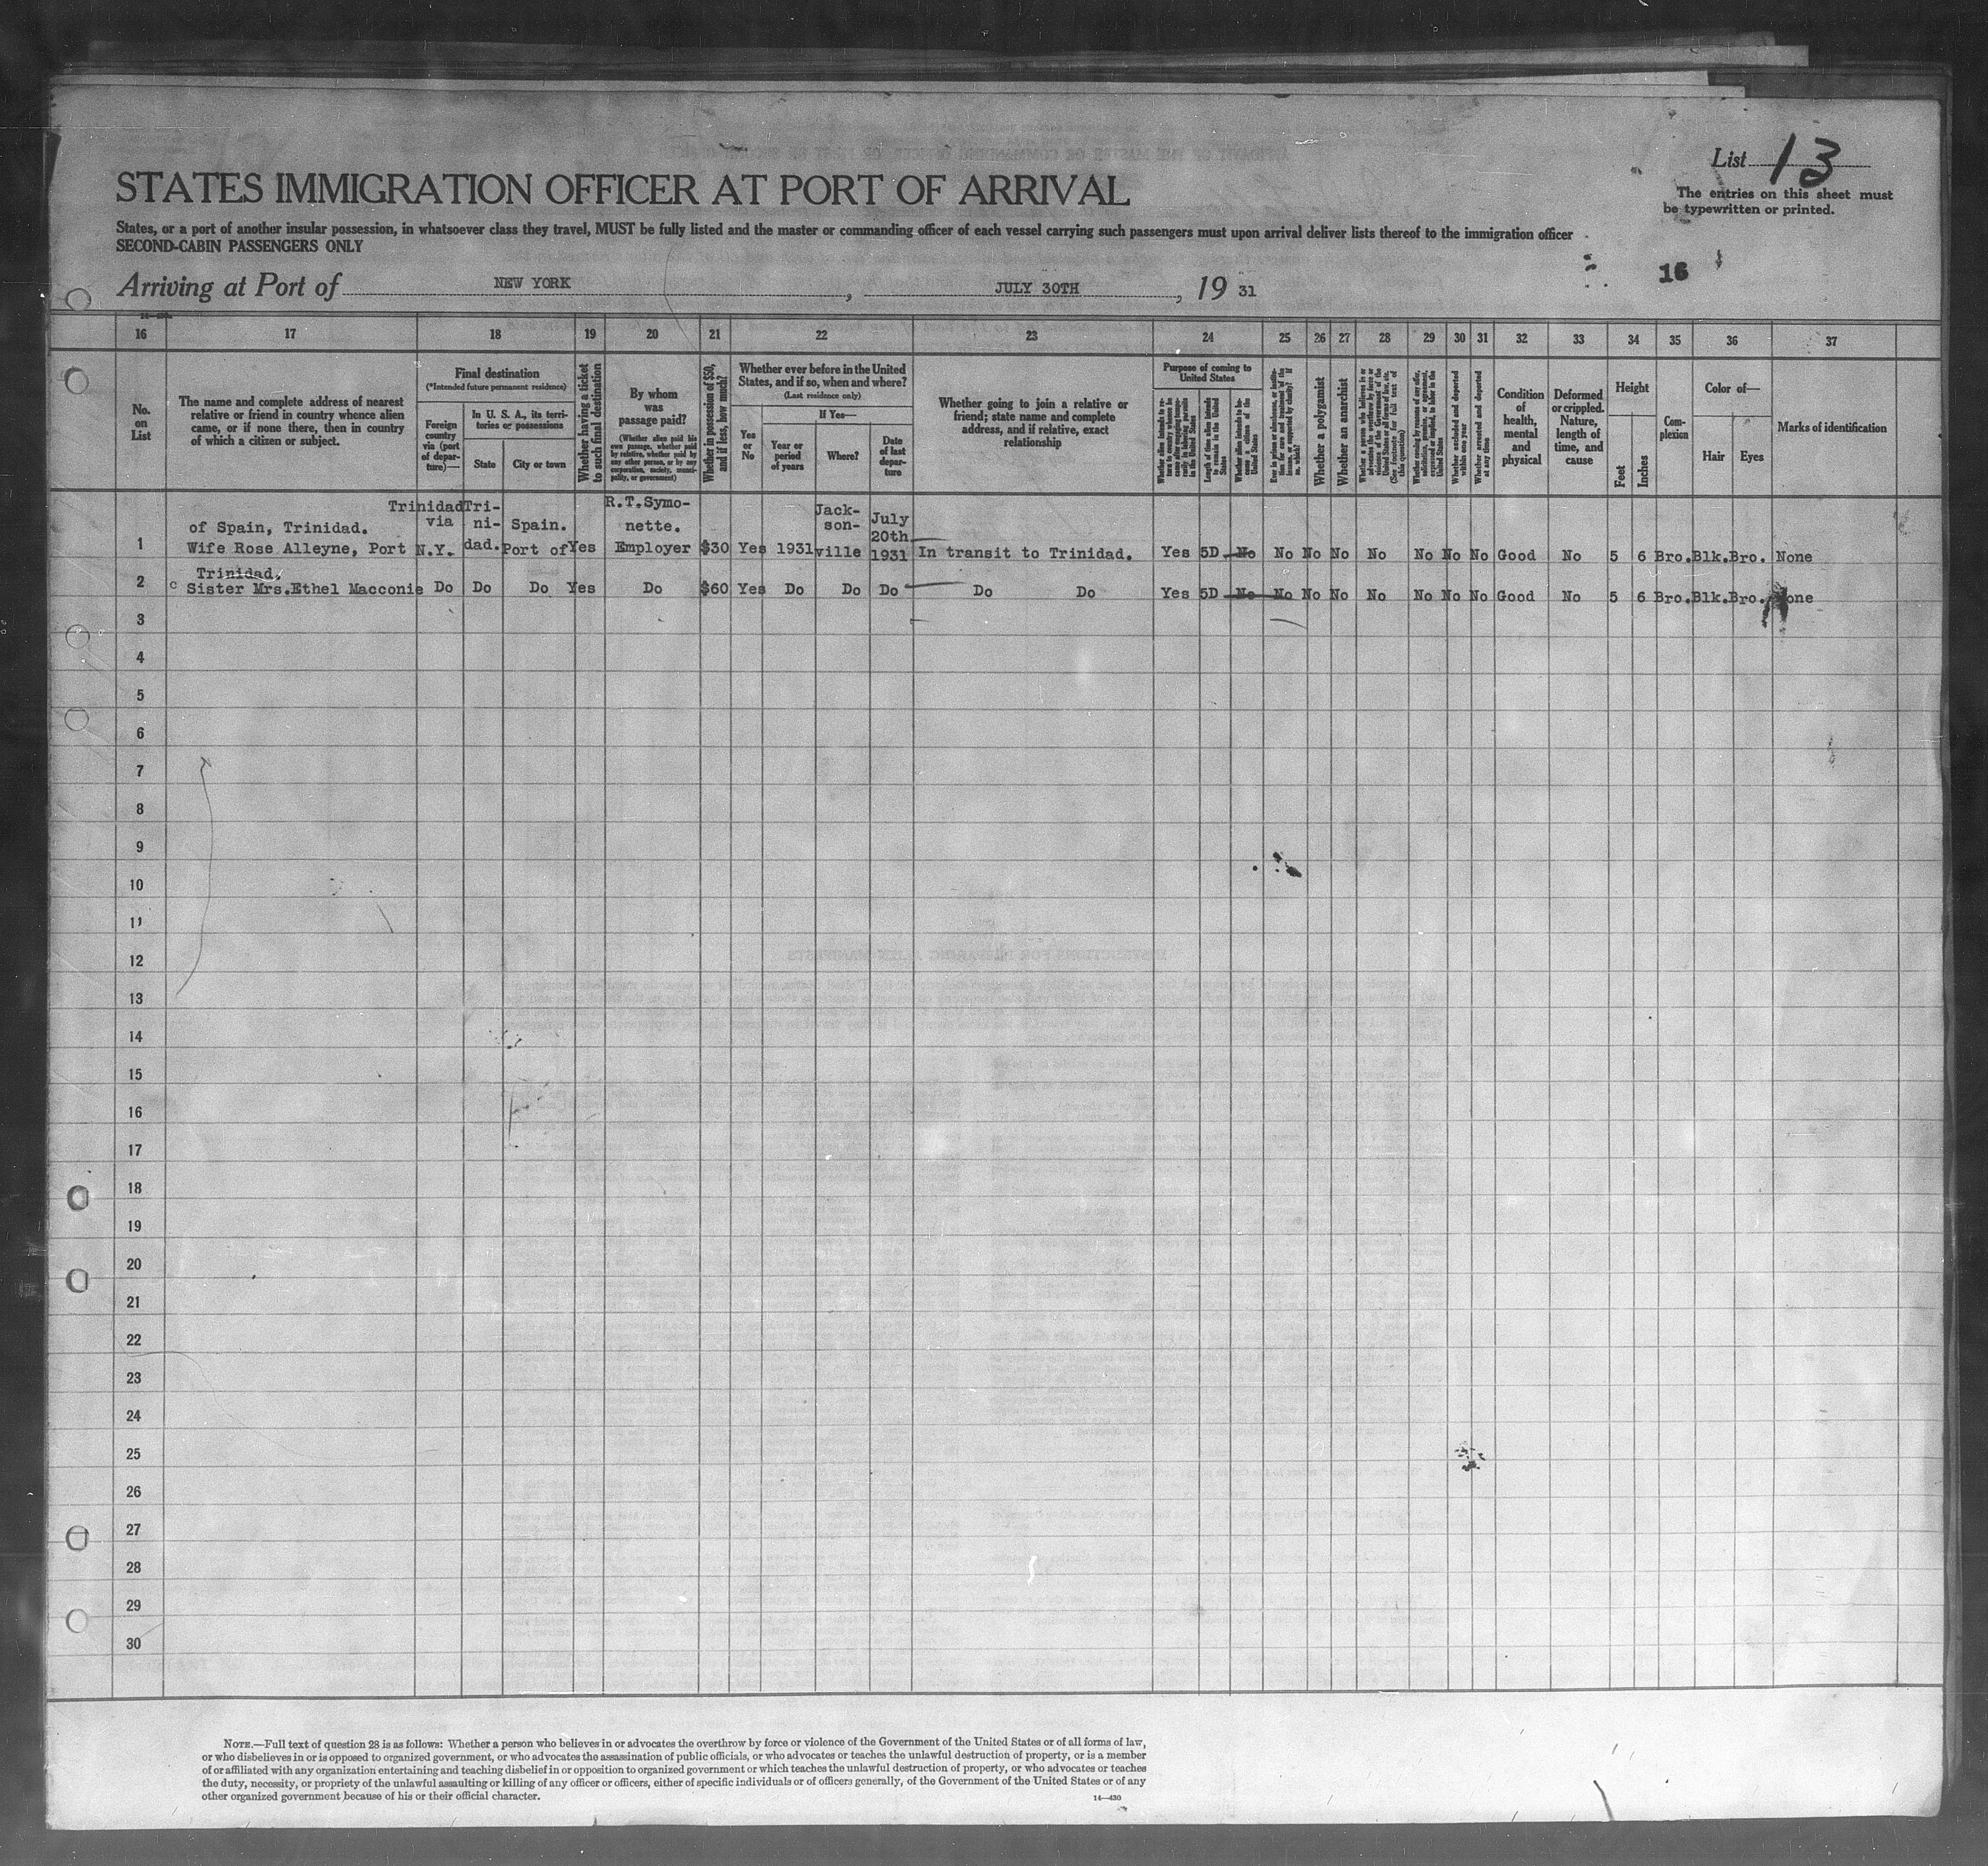 List 13
The entries on this sheet must
be typewritten or printed.
STATES IMMIGRATION OFFICER AT PORT OF ARRIVAL
States, or a port of another insular possession, in whatsoever class they travel, MUST be fully listed and the master or commanding officer of each vessel carrying such passengers must upon arrival deliver lists thereof to the immigration officer
SECOND-CABIN PASSENGERS ONLY
16
Arriving at Port of NEW YORK, JULY 30TH, 19 31
16 17 18 19 20 21 22 23 24 25 26 27 28 29 30 31 32 33 34 35 36 37
No.
on
List
The name and complete address of nearest
relative or friend in country whence alien
came, or if none there, then in country
of which a citizen or subject.
Final destination
(*Intended future permanent residence)
Foreign
country
via (port
of depar-
ture)—
In U. S. A., its terri-
tories or possessions
State
City or town
Whether having a ticket
to such final destination
By whom
was
passage paid?
(Whether alien paid his
own passage, whether paid
by relative, whether paid by
any other person, or by any
corporation, society, munici-
pality, or government)
Whether in possession of $50,
and if less, how much?
Whether ever before in the United
States, and if so, when and where?
(Last residence only)
Yes
or
No
If Yes—
Year or
period
of years
Where?
Date
of last
depar-
ture
Whether going to join a relative or
friend; state name and complete
address, and if relative, exact
relationship
Purpose of coming to
United States
Whether alien intends to re-
turn to country whence he
came after engaging tempo-
rarily in laboring pursuits
in the United States
Length of time alien intends
to remain in the United
States
Whether alien intends to be-
come a citizen of the
United States
Whether a polygamist
Whether an anarchist
(See footnote for full text of
this question)
Whether excluded and deported
within one year
Whether arrested and deported
at any time
Condition
of
health,
mental
and
physical
Deformed
or crippled.
Nature,
length of
time, and
cause
Height
Feet
Inches
Com-
plexion
Color of—
Hair
Eyes
Marks of identification
Trinidad Tri- R.T.Symo- Jack-
of Spain, Trinidad. via ni- Spain. nette. son- July
20th
1 Wife Rose Alleyne, Port N.Y. dad. Port of Yes Employer $30 Yes 1931 ville 1931 In transit to Trinidad. Yes 5D No No No No No No No No Good No 5 6 Bro. Blk. Bro. None
Trinidad.
2 c Sister Mrs.Ethel Macconie Do Do Do Yes Do $60 Yes Do Do Do Do Do Yes 5D No No No No No No No No Good No 5 6 Bro. Blk. Bro. None
3
4
5
6
7
8
9
10
11
12
13
14
15
16
17
18
19
20
21
22
23
24
25
26
27
28
29
30
NOTE.—Full text of question 28 is as follows: Whether a person who believes in or advocates the overthrow by force or violence of the Government of the United States or of all forms of law,
or who disbelieves in or is opposed to organized government, or who advocates the assassination of public officials, or who advocates or teaches the unlawful destruction of property, or is a member
of or affiliated with any organization entertaining and teaching disbelief in or opposition to organized government or which teaches the unlawful destruction of property, or who advocates or teaches
the duty, necessity, or propriety of the unlawful assaulting or killing of any officer or officers, either of specific individuals or of officers generally, of the Government of the United States or of any
other organized government because of his or their official character.
14—430